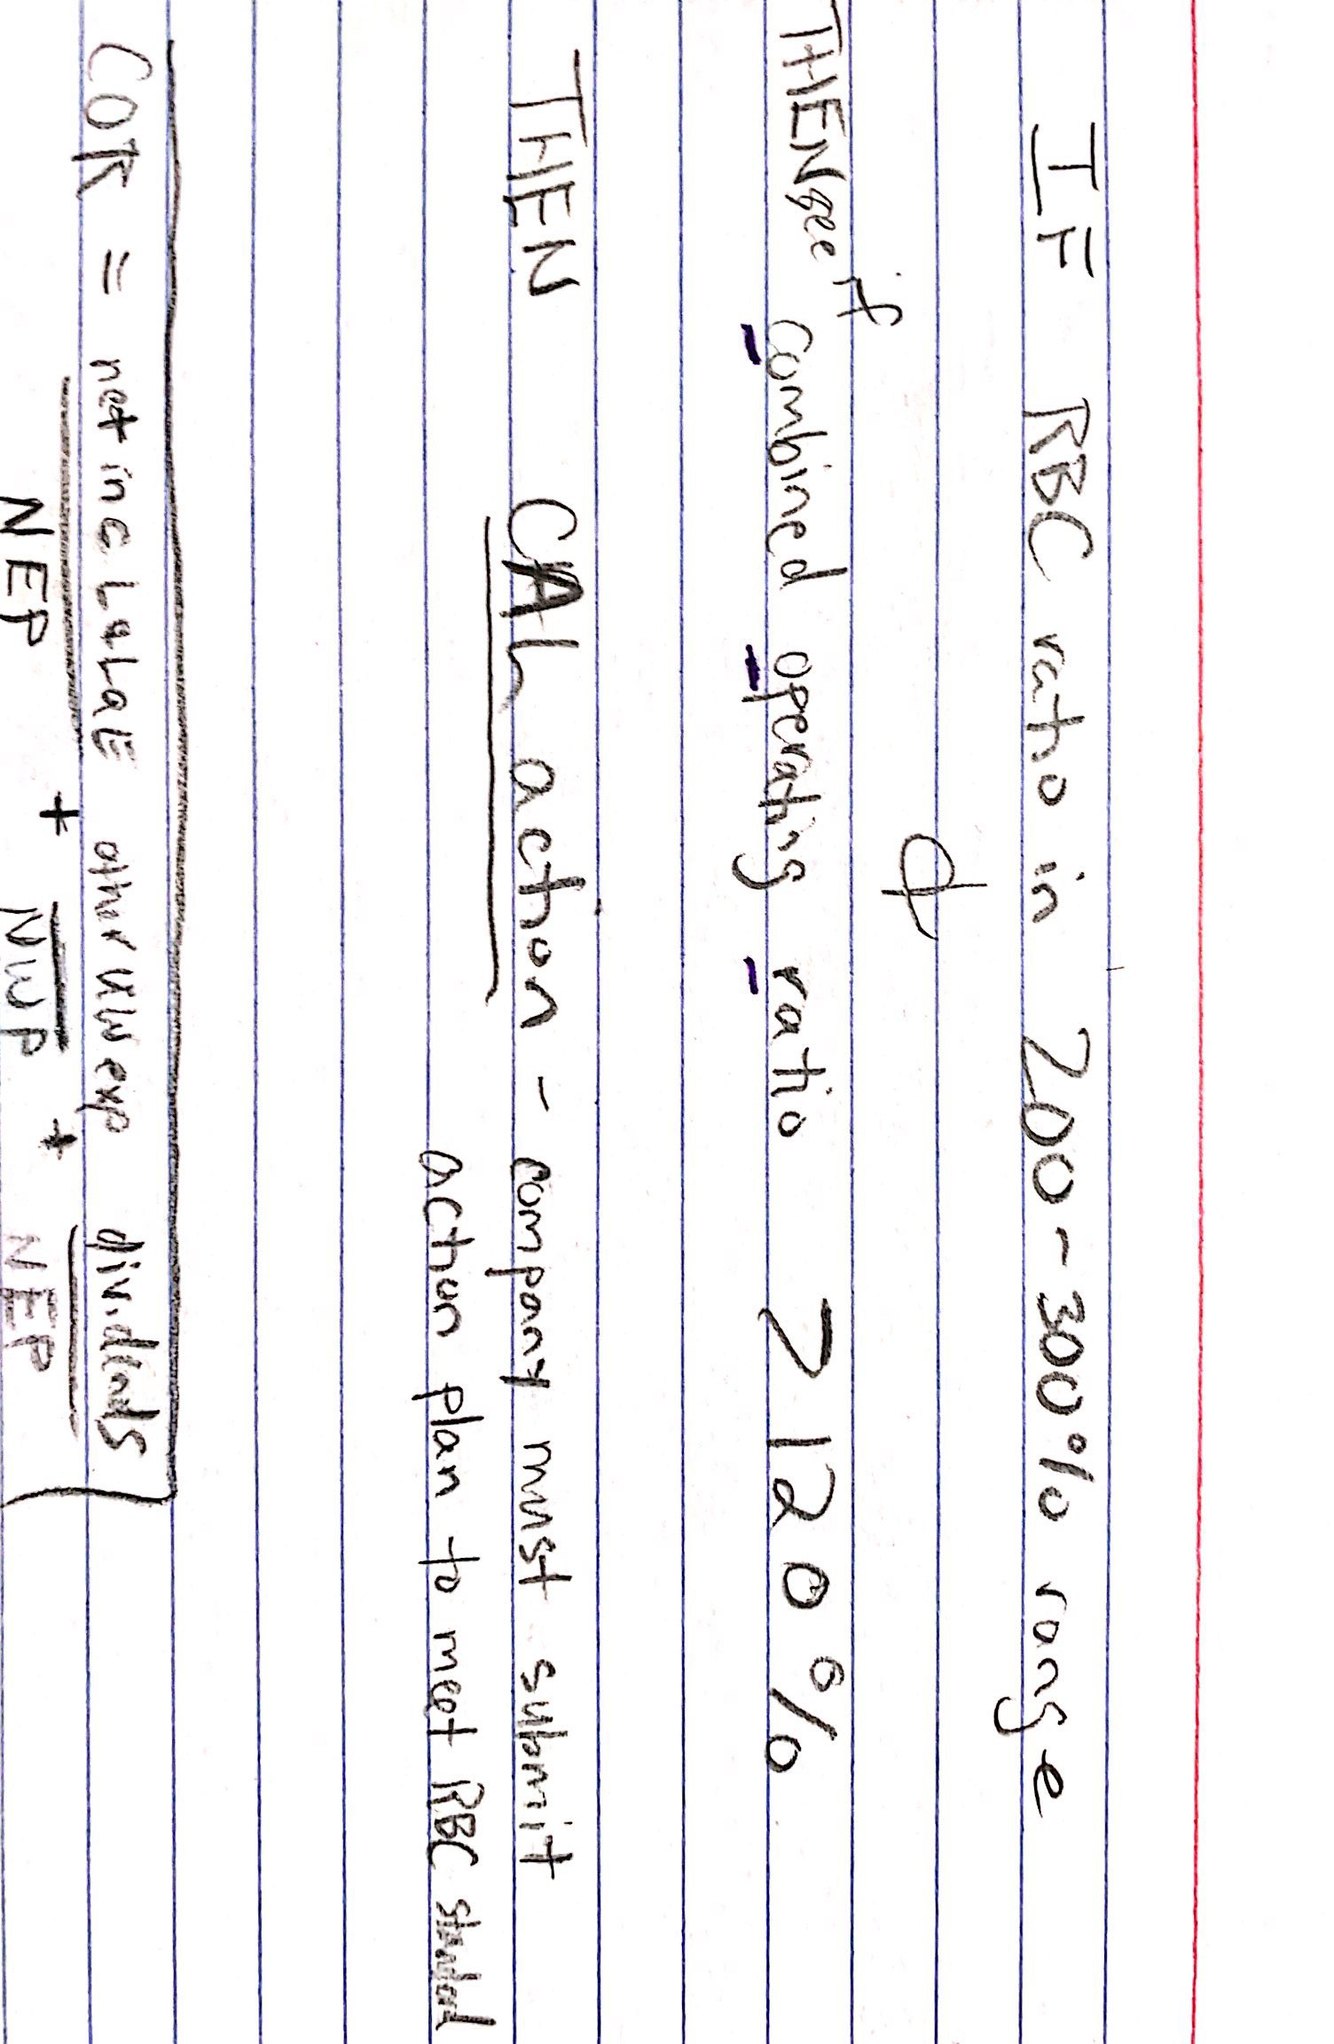 IF RBC ratio in 200-300% range
&
THEN see if combined operating ratio > 120%
THEN CAL action - company must submit
action plan to meet RBC standard
COR = net inc L & LAE other UW exp dividends
+ +
NEP NWP NEP